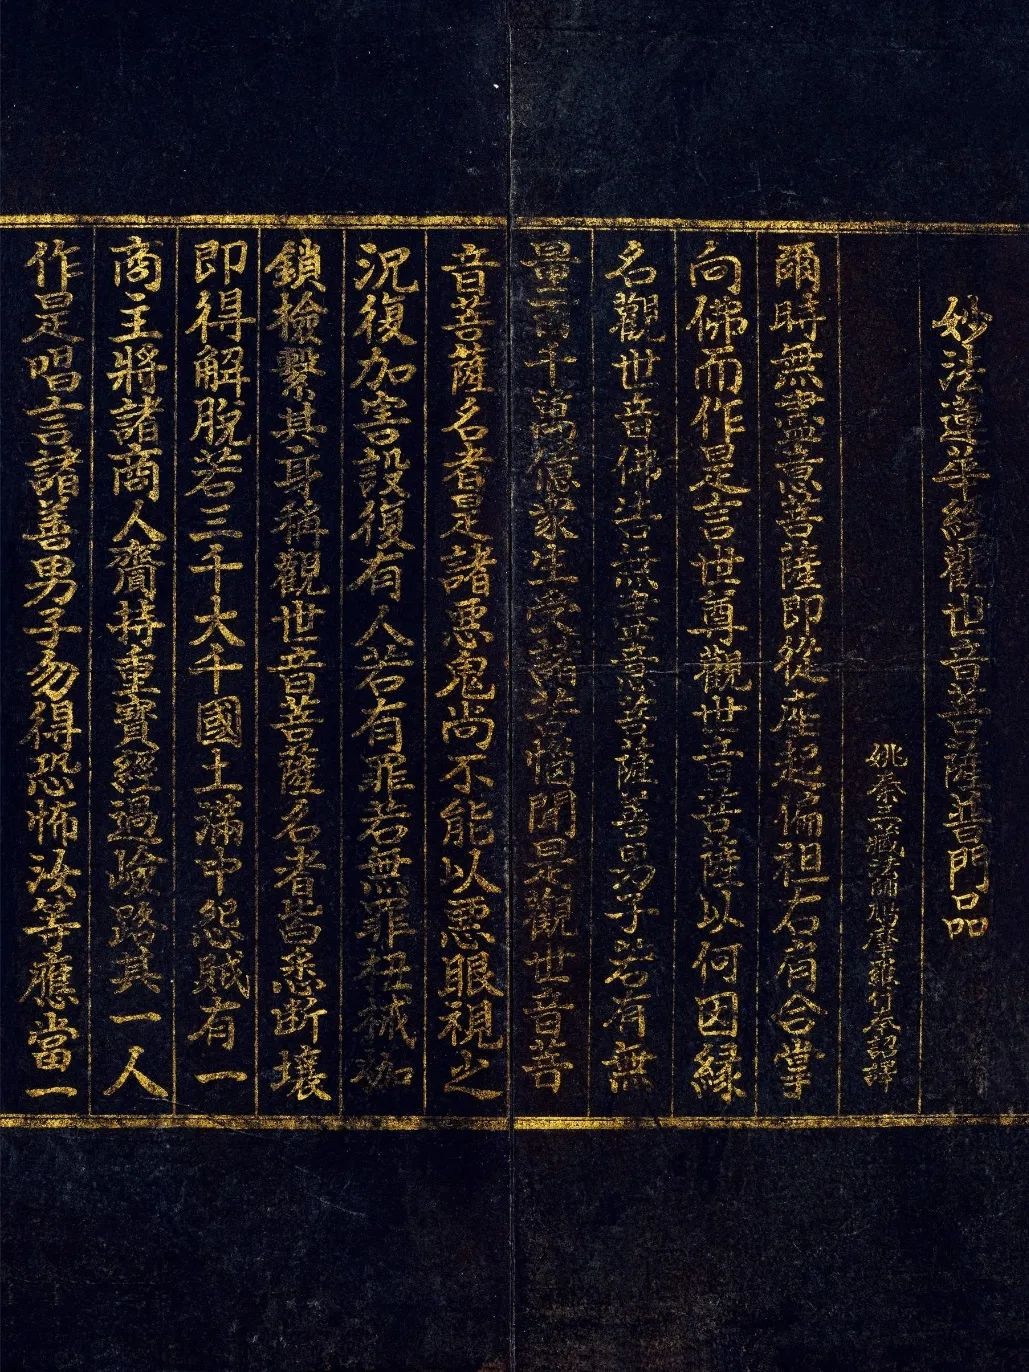 妙法蓮華經觀世音菩薩普門品
姚秦三藏法師鳩摩羅什奉詔譯
爾時無盡意菩薩即從座起偏袒右肩合掌
向佛而作是言世尊觀世音菩薩以何因緣
名觀世音佛告無盡意菩薩善男子若有無
量百千萬億衆生受諸苦惱聞是觀世音菩
音菩薩名者是諸惡鬼尚不能以惡眼視之
況復加害設復有人若有罪若無罪杻械枷
鎖檢繫其身稱觀世音菩薩名者皆悉斷壞
即得解脫若三千大千國土滿中怨賊有一
商主將諸商人齎持重寶經過嶮路其一人
作是唱言諸善男子勿得恐怖汝等應當一